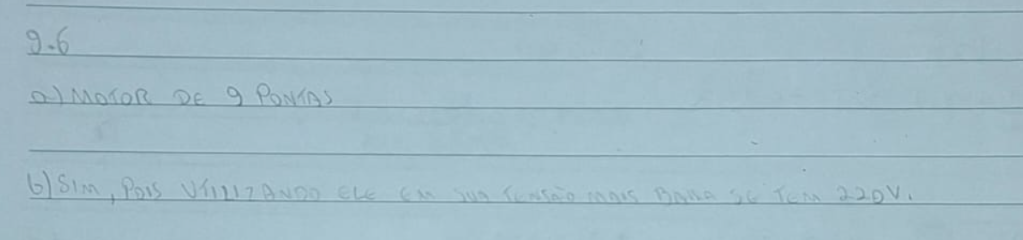 9.6
a) MOTOR DE 9 PONTAS
b) SIM, POIS UTILIZANDO ELE EM SUA TENSÃO MAIS BAIXA SE TEM 220V.